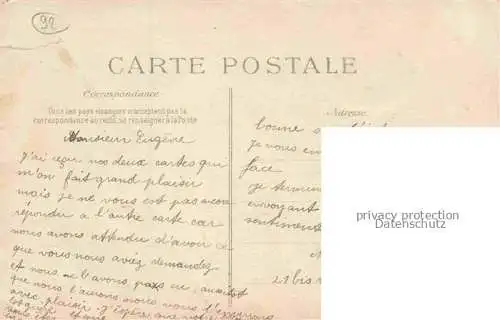 92
CARTE POSTALE
Correspondance
Tous les pays étrangers n'acceptent pas la
correspondance au recto, se renseigner à la Poste
Adresse
Monsieur Eugène
J'ai reçu vos deux cartes qui
m'on fait grand plaisir
mais je ne vous est pas encore
répondu a l'autre carte car
nous avons attendu d'avoir ce
que vous nous aviez demandez
et nous ne l'avons pas eu, aussitot
que nous l'aurons nous vous l'enverrons
avec plaisir. J'espère que
bonne
je vous en
face
je termine
envoyant
sentiments
21 bis
privacy protection
Datenschutz